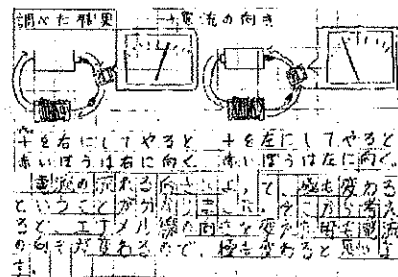 調べた結果
→電流の向き
+を右にしてやると
赤いぼうは右に向く。
+を左にしてやると
赤いぼうは左に向く。
電流の流れる向きによって、極も変わる
ということが分かりました。だから考え
ると、エナメル線の向きを変えても電流
の向きが変わるので、極も変わると思いま
す。